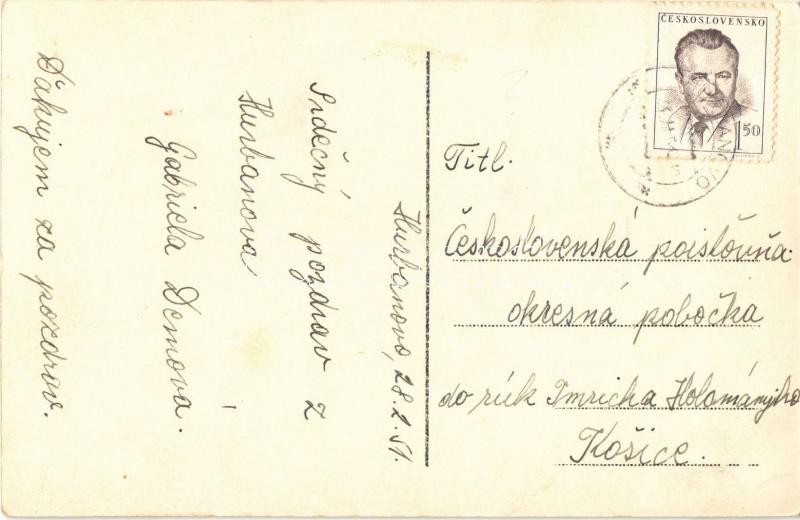 Hurbanovo, 28.2.51.
Srdečný pozdrav z
Hurbanova
Gabriela Demova.
Ďakujem za pozdrav.
ČESKOSLOVENSKO
1 50
Titl.
Československá poisťovňa
okresná pobočka
do rúk Imricha Holományiho
Košice.